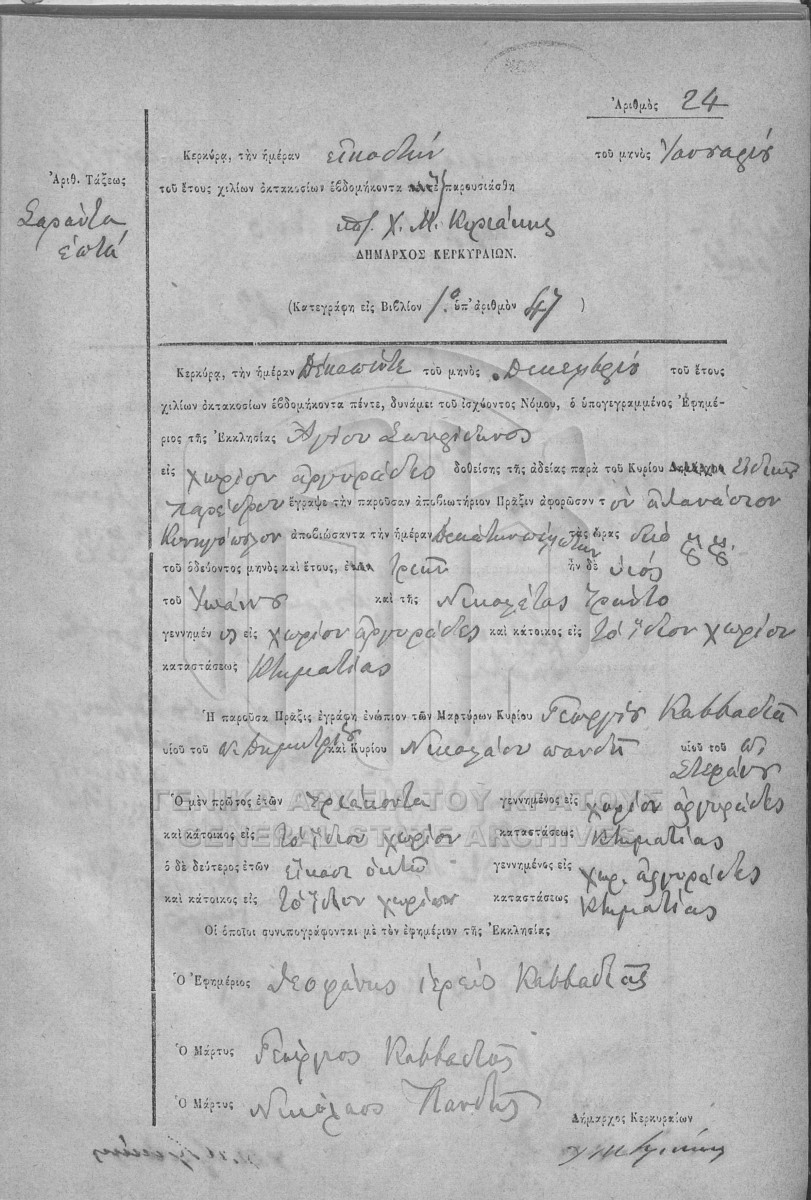 Ἀριθμὸς 24
Κερκύρᾳ, τὴν ἡμέραν εἰκοστὴν τοῦ μηνὸς Ἰανουαρίου
Ἀριθ. Τάξεως
Σαράντα
ἑπτά
τοῦ ἔτους χιλίων ὀκτακοσίων ἑβδομήκοντα παρουσιάσθη
Χ. Μ. Κυριάκης
ΔΗΜΑΡΧΟΣ ΚΕΡΚΥΡΑΙΩΝ.
(Κατεγράφη εἰς Βιβλίον 1ο ὑπ' ἀριθμὸν 47 )
Κερκύρᾳ, τὴν ἡμέραν Δεκαπέντε τοῦ μηνὸς Δεκεμβρίου τοῦ ἔτους
χιλίων ὀκτακοσίων ἑβδομήκοντα πέντε, δυνάμει τοῦ ἰσχύοντος Νόμου, ὁ ὑπογεγραμμένος Ἐφημέ-
ριος τῆς Ἐκκλησίας Ἁγίου Σπυρίδωνος
εἰς χωρίον Αργυράδες δοθείσης τῆς ἀδείας παρὰ τοῦ Κυρίου Δημάρχου Εἰδικοῦ
παρέδρου ἔγραψε τὴν παροῦσαν ἀποβιωτήριον Πρᾶξιν ἀφορῶσαν τ ὸν Αθανάσιον
ἀποβιώσαντα τὴν ἡμέραν Δεκάτην πέμπτην τὰς ὥρας δύο
τοῦ ὁδεύοντος μηνὸς καὶ ἔτους, ἐτῶν ἦν δὲ υἱός
τοῦ Ἰωάννου καὶ τῆς Νικολέτας
γεννημέν ος εἰς χωρίον Αργυράδες καὶ κάτοικος εἰς τὸ ἴδιον χωρίον
καταστάσεως Κτηματίας
Ἡ παροῦσα Πρᾶξις ἐγράφη ἐνώπιον τῶν Μαρτύρων Κυρίου Γεωργίου Καββαδᾶ
υἱοῦ τοῦ Δημητρίου καὶ Κυρίου Νικολάου Πανδῆ υἱοῦ τοῦ π.
Στεφάνου
ΓΕΝΙΚΑ ΑΡΧΕΙΑ ΤΟΥ ΚΡΑΤΟΥΣ
GENERAL STATE ARCHIVES
Ὁ μὲν πρῶτος ἐτῶν Τριάκοντα γεννημένος εἰς χωρίον Αργυράδες
καὶ κάτοικος εἰς τὸ ἴδιον χωρίον καταστάσεως Κτηματίας
ὁ δὲ δεύτερος ἐτῶν εἴκοσι ὀκτὼ γεννημένος εἰς χωρ. Αργυράδες
καὶ κάτοικος εἰς τὸ ἴδιον χωρίον καταστάσεως Κτηματίας
Οἱ ὁποῖοι συνυπογράφονται μὲ τὸν ἐφημέριον τῆς Ἐκκλησίας
Ὁ Ἐφημέριος Θεοφάνης ἱερεύς Καββαδᾶς
Ὁ Μάρτυς Γεώργιος Καββαδᾶς
Ὁ Μάρτυς Νικόλαος Πανδῆς
Δήμαρχος Κερκυραίων